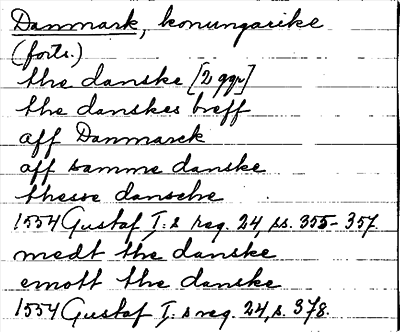 Danmark, konungarike
(forts.)
the danske [2 ggr]
the danskes breff
aff Danmarck
aff samme danske
thesse dansche
1554 Gustaf I:s reg. 24, ss. 355-357.
medt the danske
emott the danske
1554 Gustaf I:s reg. 24, s. 378.